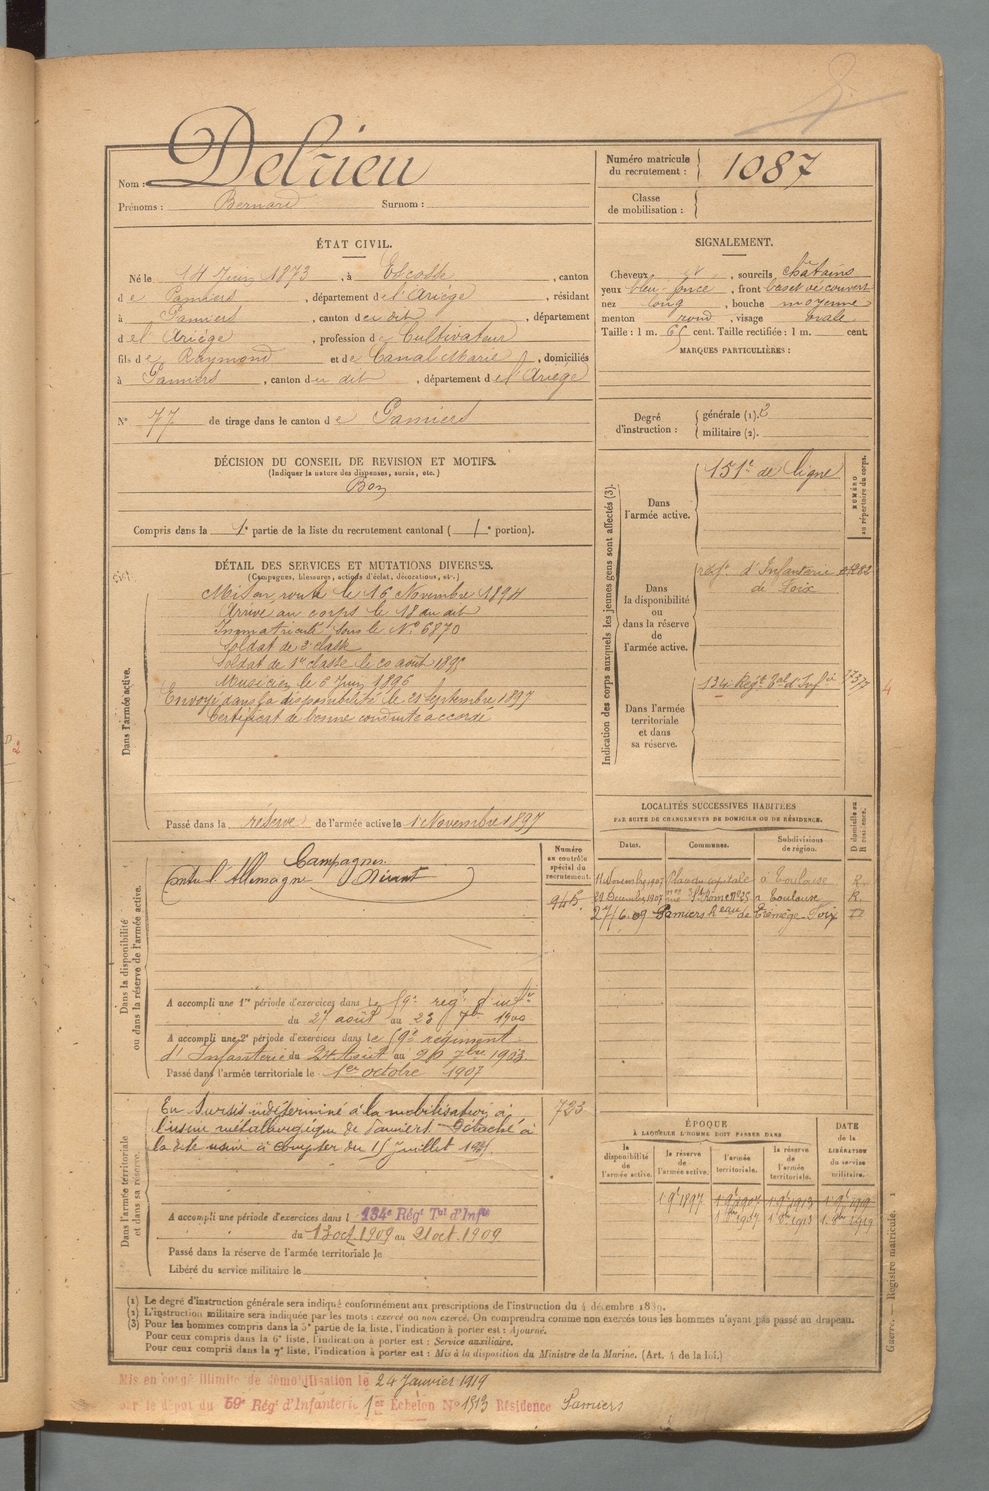 Nom : Delrieu
Prénoms : Bernard Surnom :
Numéro matricule du recrutement : 1087
Classe de mobilisation :
ÉTAT CIVIL.
Né le 14 Juin 1873, à Escosse, canton
de Pamiers, département de l'Ariège, résidant
à Pamiers, canton du dit, département
de l'Ariège, profession de Cultivateur
fils de Raymond et de Canal Marie, domiciliés
à Pamiers, canton du dit, département de l'Ariège
N° 77 de tirage dans le canton de Pamiers
SIGNALEMENT.
Cheveux et, sourcils châtains
yeux bleu foncé, front bas et découvert
nez long, bouche moyenne
menton rond, visage ovale
Taille : 1 m. 65 cent. Taille rectifiée : 1 m. cent.
MARQUES PARTICULIÈRES :
Degré d'instruction : générale (1). 2
militaire (2).
DÉCISION DU CONSEIL DE REVISION ET MOTIFS.
(Indiquer la nature des dispenses, sursis, etc.)
Bon
Compris dans la 1e partie de la liste du recrutement cantonal ( 1e portion).
DÉTAIL DES SERVICES ET MUTATIONS DIVERSES.
(Campagnes, blessures, actions d'éclat, décorations, etc.)
Dans l'armée active.
Mis en route le 16 Novembre 1894
Arrivé au corps le 18 du dit
Immatriculé sous le N° 6870
Soldat de 2e classe
Soldat de 1re classe le 20 août 1895
Musicien le 6 Juin 1896
Envoyé dans la disponibilité le 21 Septembre 1897
Certificat de bonne conduite accordé
Passé dans la réserve de l'armée active le 1 Novembre 1897
Indication des corps auxquels les jeunes gens sont affectés (3).
NUMÉRO au répertoire du corps.
Dans l'armée active.
151e de ligne
Dans la disponibilité ou dans la réserve de l'armée active.
régt d'Infanterie
de Foix
Dans l'armée territoriale et dans sa réserve.
134 Régt Tal d'Infie
4
LOCALITÉS SUCCESSIVES HABITÉES
PAR SUITE DE CHANGEMENTS DE DOMICILE OU DE RÉSIDENCE.
Dates. Communes. Subdivisions de région. D domicile ou R résidence.
11 Novembre 1907 Place du capitole à Toulouse R.
29 Décembre 1907 rue St Rome n° 25 à Toulouse R.
27/6.09 Pamiers hau de Trémège Foix D
Dans la disponibilité ou dans la réserve de l'armée active.
Numéro au contrôle spécial du recrutement.
945.
Campagnes
Contre l'Allemagne Néant
A accompli une 1re période d'exercices dans le 59e régt d'infie
du 27 août au 23 7bre 1900
A accompli une 2e période d'exercices dans le 59e régiment
d'Infanterie du 24 Août au 20 7bre 1903
Passé dans l'armée territoriale le 1er octobre 1907
Dans l'armée territoriale et dans sa réserve.
723
En sursis indéterminé à la mobilisation à
l'usine métallurgique de Pamiers. Détaché à
la dite usine à compter du 15 juillet
A accompli une période d'exercices dans l 134e Régt Tal d'Infie
du 13 oct. 1909 au 21 oct. 1909
Passé dans la réserve de l'armée territoriale le
Libéré du service militaire le
ÉPOQUE
À LAQUELLE L'HOMME DOIT PASSER DANS
la disponibilité de l'armée active. la réserve de l'armée active. l'armée territoriale. la réserve de l'armée territoriale.
DATE de la LIBÉRATION du service militaire.
1 9e 1897 1 9e 1907 1 9e 1913 1 9e 1919
1 8bre 1907 1 8bre 1913 1. 8bre 1919
(1) Le degré d'instruction générale sera indiqué conformément aux prescriptions de l'instruction du 4 décembre 1889.
(2) L'instruction militaire sera indiquée par les mots : exercé ou non exercé. On comprendra comme non exercés tous les hommes n'ayant pas passé au drapeau.
(3) Pour les hommes compris dans la 5e partie de la liste, l'indication à porter est : Ajourné.
Pour ceux compris dans la 6e liste, l'indication à porter est : Service auxiliaire.
Pour ceux compris dans la 7e liste, l'indication à porter est : Mis à la disposition du Ministre de la Marine. (Art. 4 de la loi.)
Guerre. — Registre matricule. 1
Mis en congé illimité de démobilisation le 24 Janvier 1919
par le dépôt du 59e Régt d'Infanterie 1er Échelon N° 1513 Résidence Pamiers